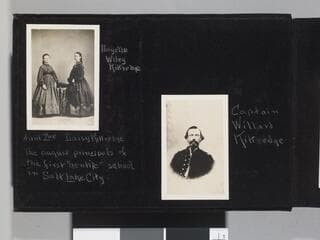 Wiley
Kittredge
Aunt Zoe Daisy Kittredge
the august principals of
the first "Gentile" school
in Salt Lake City.
Captain
Willard
Kittredge